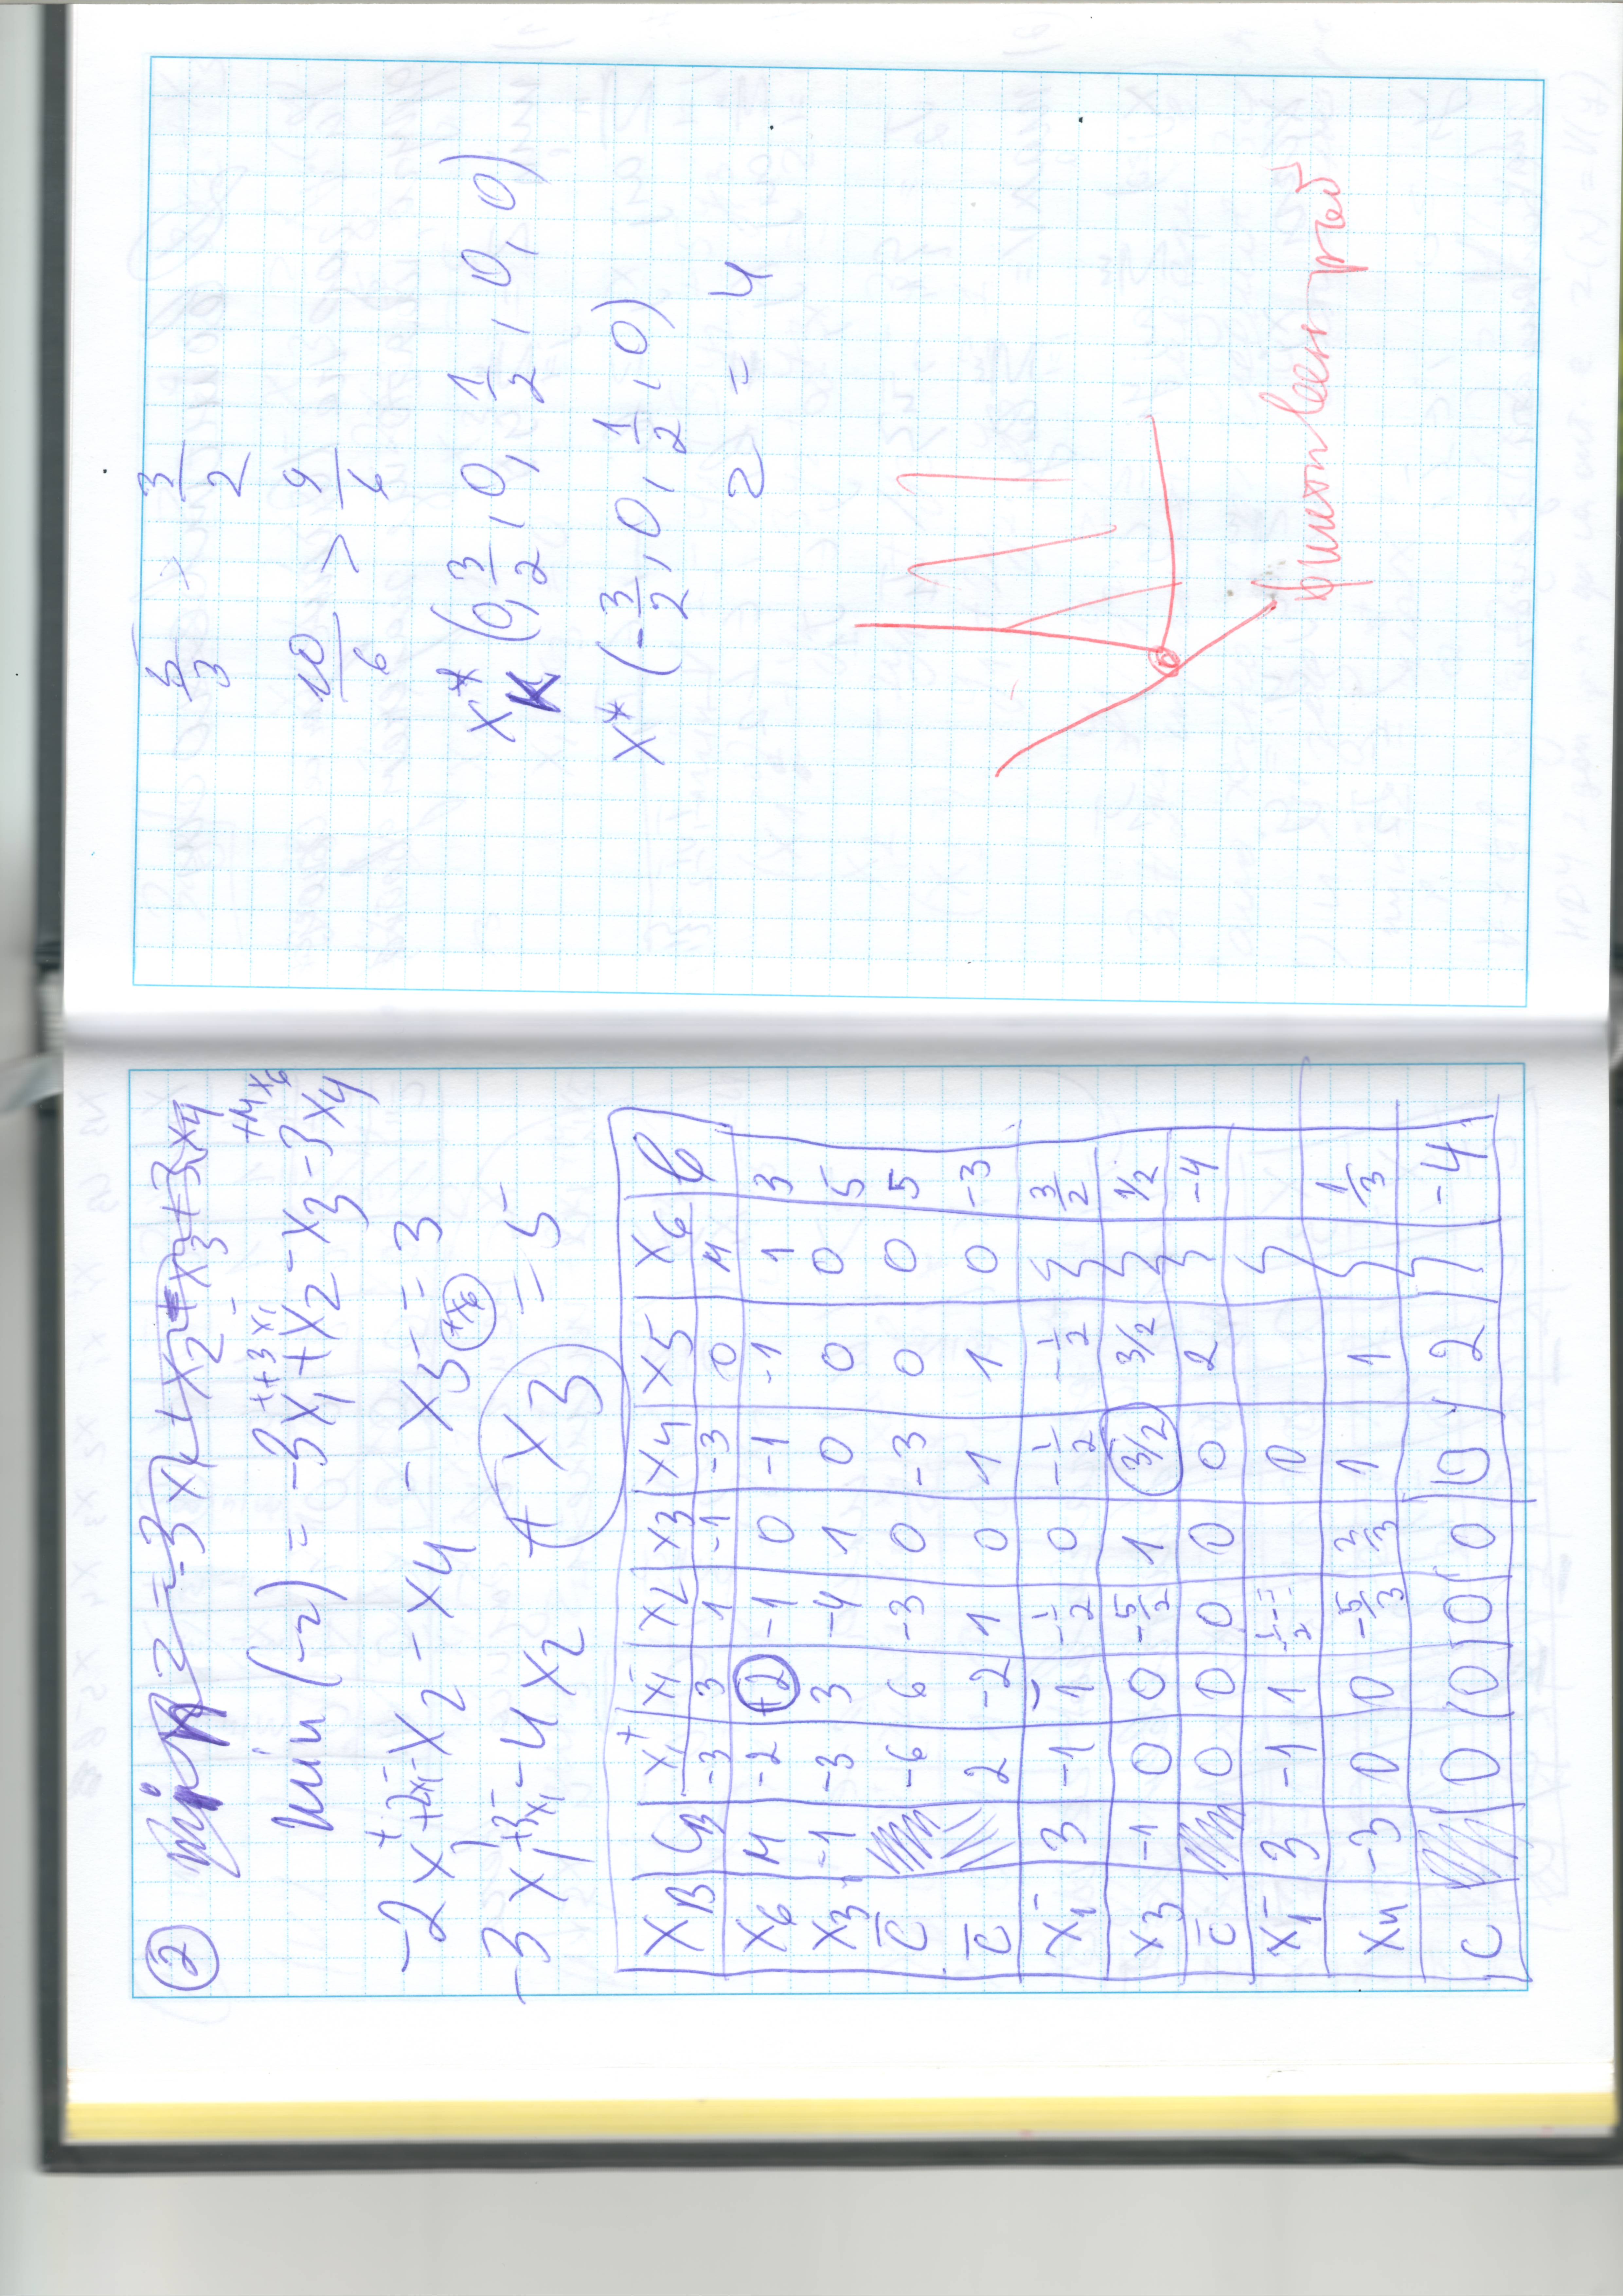 ②
min z = -3x1 + x2 + x3 + 3x4
min (-z) = -3x1⁺ + 3x1⁻ + x2 - x3 - 3x4 + Mx6
-2x1⁺ + 2x1⁻ - x2 - x4 - x5 + x6 = 3
-3x1⁺ + 3x1⁻ - 4x2 + x3 = 5
XB | CB | x1⁺ | x1⁻ | x2 | x3 | x4 | x5 | x6 | b
-3 | 3 | 1 | -1 | -3 | 0 | M
x6 | M | -2 | +2 | -1 | 0 | -1 | -1 | 1 | 3
x3 | -1 | -3 | 3 | -4 | 1 | 0 | 0 | 0 | 5
C̄ | -6 | 6 | -3 | 0 | -3 | 0 | 0 | 5
C̄ | 2 | -2 | 1 | 0 | 1 | 1 | 0 | -3
x1⁻ | 3 | -1 | 1 | -1/2 | 0 | -1/2 | -1/2 | 3/2
x3 | -1 | 0 | 0 | -5/2 | 1 | 3/2 | 3/2 | 1/2
C̄ | 0 | 0 | 0 | 0 | 0 | 2 | -4
x1⁻ | 3 | -1 | 1 | 0
x4 | -3 | 0 | 0 | -5/3 | 2/3 | 1 | 1 | 1/3
C | 0 | 0 | 0 | 0 | 0 | 2 | -4
5/3 > 3/2
10/6 > 9/6
X*K (0, 3/2, 0, 1/2, 0, 0)
X* (-3/2, 0, 1/2, 0)
z = 4